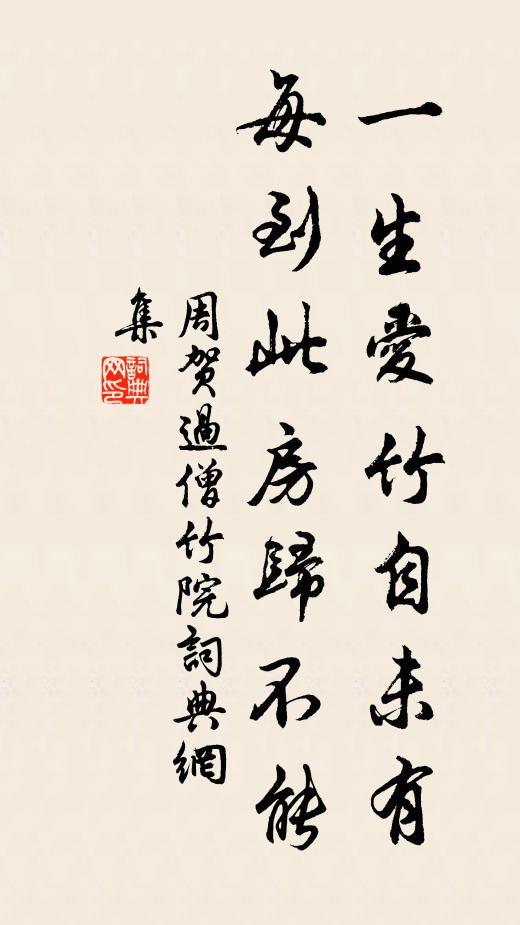 一生愛竹自未有
每到此房歸不能
周賀過僧竹院詞典網
集
詞典
网印